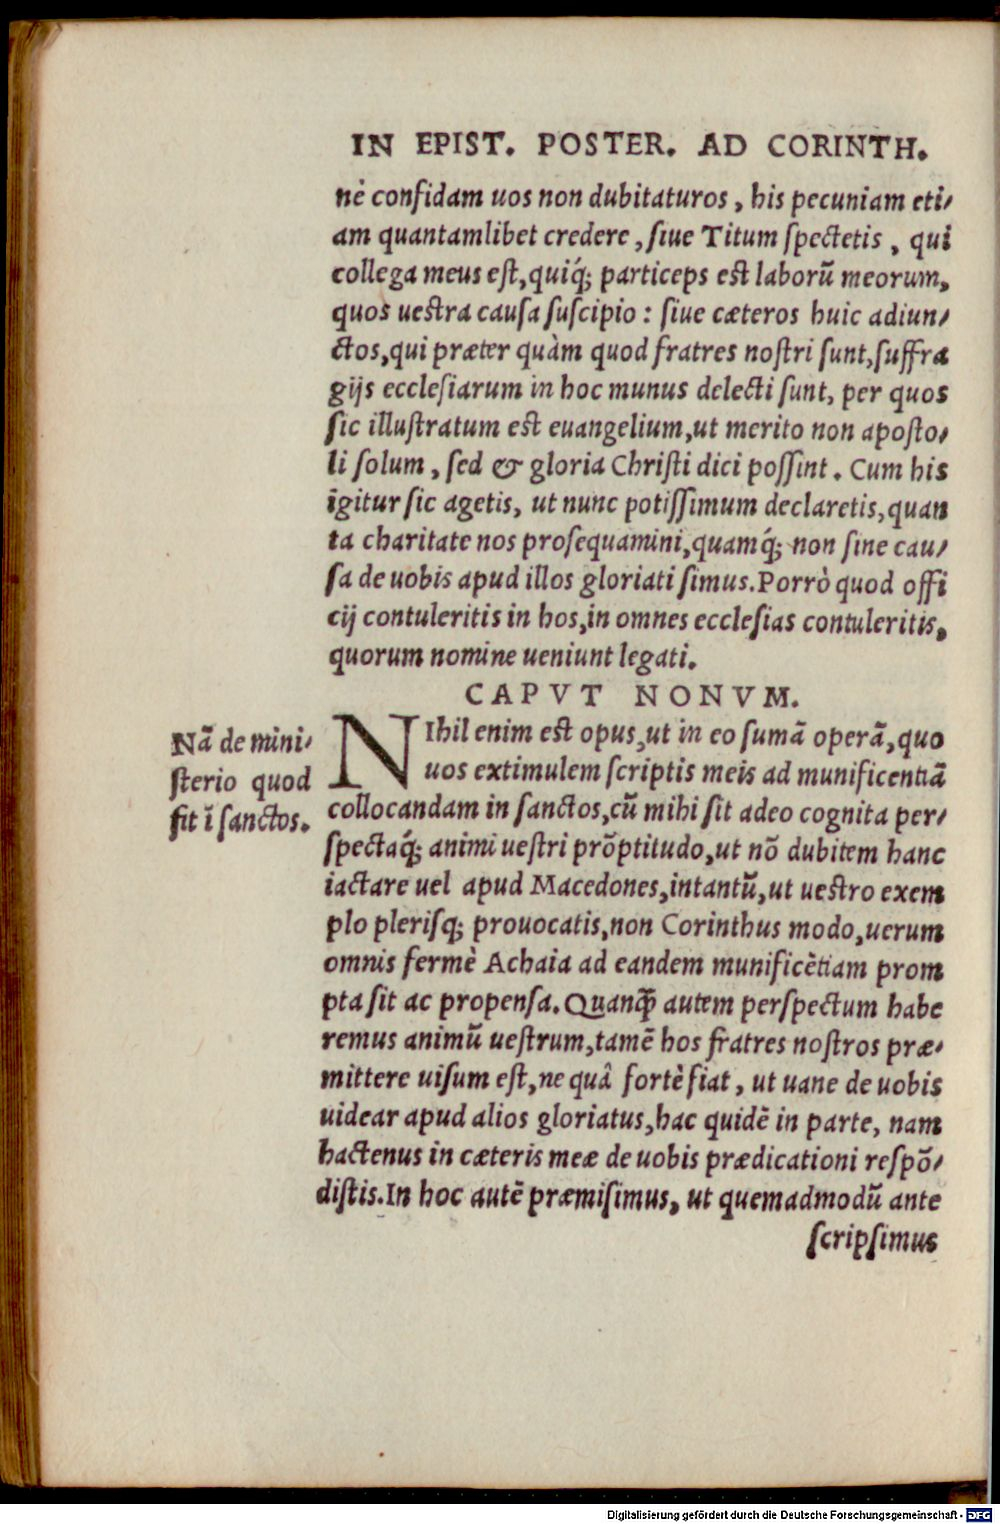 IN EPIST. POSTER. AD CORINTH.
nè confidam uos non dubitaturos, his pecuniam eti/
am quantamlibet credere, ſiue Titum ſpectetis, qui
collega meus eſt, quiq́; particeps eſt laborũ meorum,
quos ueſtra cauſa ſuſcipio: ſiue cæteros huic adiun/
ctos, qui præter quàm quod fratres noſtri ſunt, ſuffra
gijs eccleſiarum in hoc munus delecti ſunt, per quos
ſic illuſtratum eſt euangelium, ut merito non apoſto/
li ſolum, ſed & gloria Chriſti dici poſſint. Cum his
igitur ſic agetis, ut nunc potiſſimum declaretis, quan
ta charitate nos proſequamini, quamq́; non ſine cau/
ſa de uobis apud illos gloriati ſimus. Porrò quod offi
cij contuleritis in hos, in omnes eccleſias contuleritis,
quorum nomine ueniunt legati.
CAPVT NONVM.
Nã de mini/
ſterio quod
fit ĩ ſanctos.
NIhil enim eſt opus, ut in eo ſumã operã, quo
uos extimulem ſcriptis meis ad munificentiã
collocandam in ſanctos, cũ mihi ſit adeo cognita per/
ſpectaq́; animi ueſtri prõptitudo, ut nõ dubitem hanc
iactare uel apud Macedones, intantũ, ut ueſtro exem
plo pleriſq; prouocatis, non Corinthus modo, uerum
omnis fermè Achaia ad eandem munificẽtiam prom
pta ſit ac propenſa. Quanꝗ̃ autem perſpectum habe
remus animũ ueſtrum, tamẽ hos fratres noſtros præ/
mittere uiſum eſt, ne quâ fortè fiat, ut uane de uobis
uidear apud alios gloriatus, hac quidẽ in parte, nam
hactenus in cæteris meæ de uobis prædicationi reſpõ/
diſtis. In hoc autẽ præmiſimus, ut quemadmodũ ante
ſcripſimus
Digitalisierung gefördert durch die Deutsche Forschungsgemeinschaft - DFG